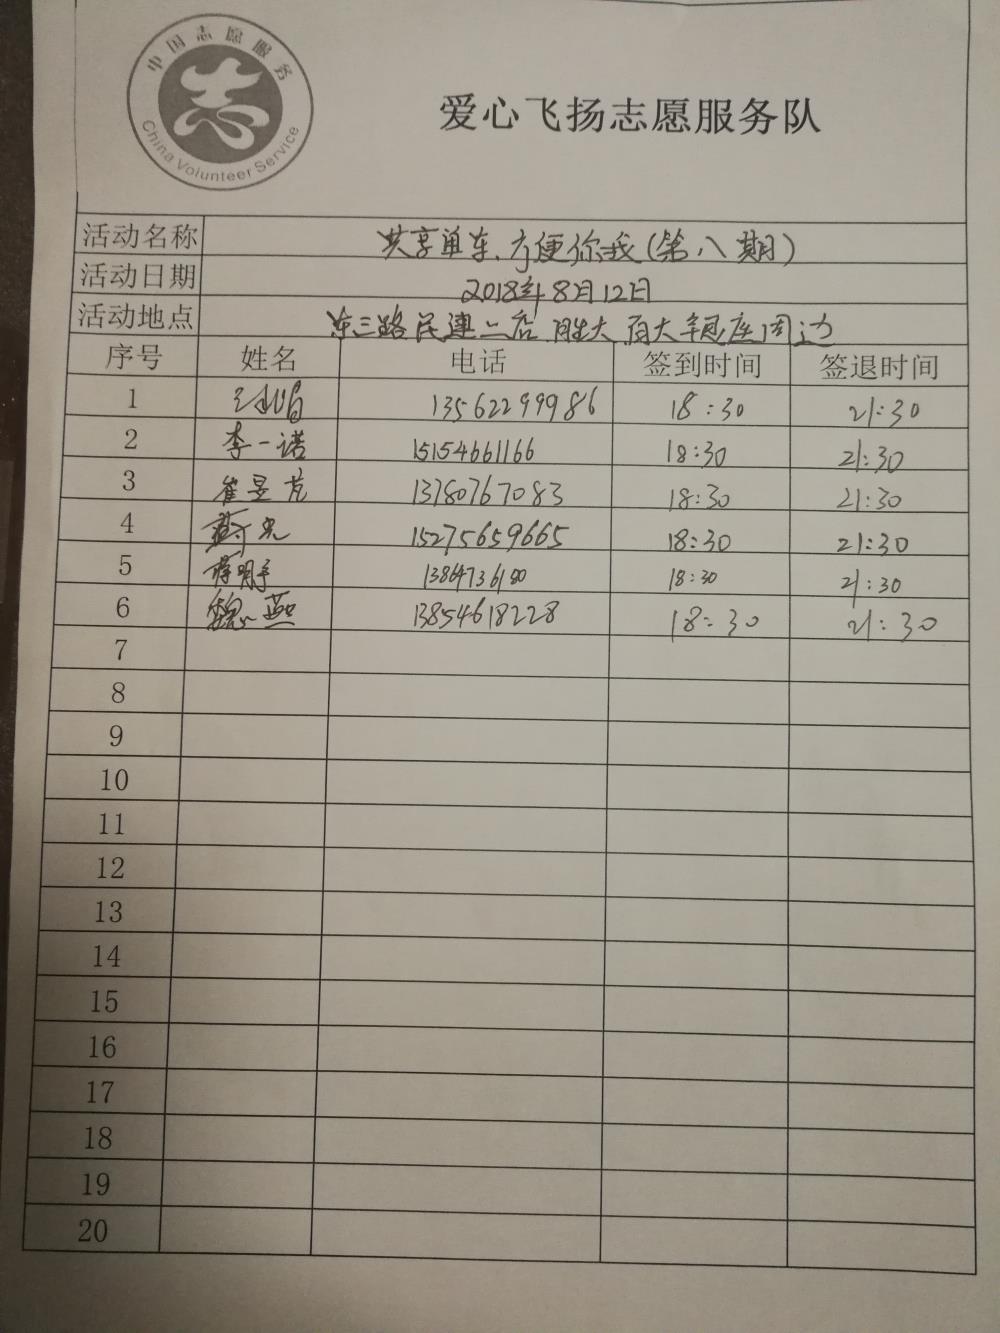 中国志愿服务
China Volunteer Service
爱心飞扬志愿服务队
活动名称 共享单车、方便你我(第八期)
活动日期 2018年8月12日
活动地点 东三路民建二店 胜大 百大 周边
序号 姓名 电话 签到时间 签退时间
1 13562299986 18:30 21:30
2 李一诺 15154661166 18:30 21:30
3 崔昱 13780767083 18:30 21:30
4 15275659665 18:30 21:30
5 18:30 21:30
6 魏燕 13854618228 18:30 21:30
7
8
9
10
11
12
13
14
15
16
17
18
19
20